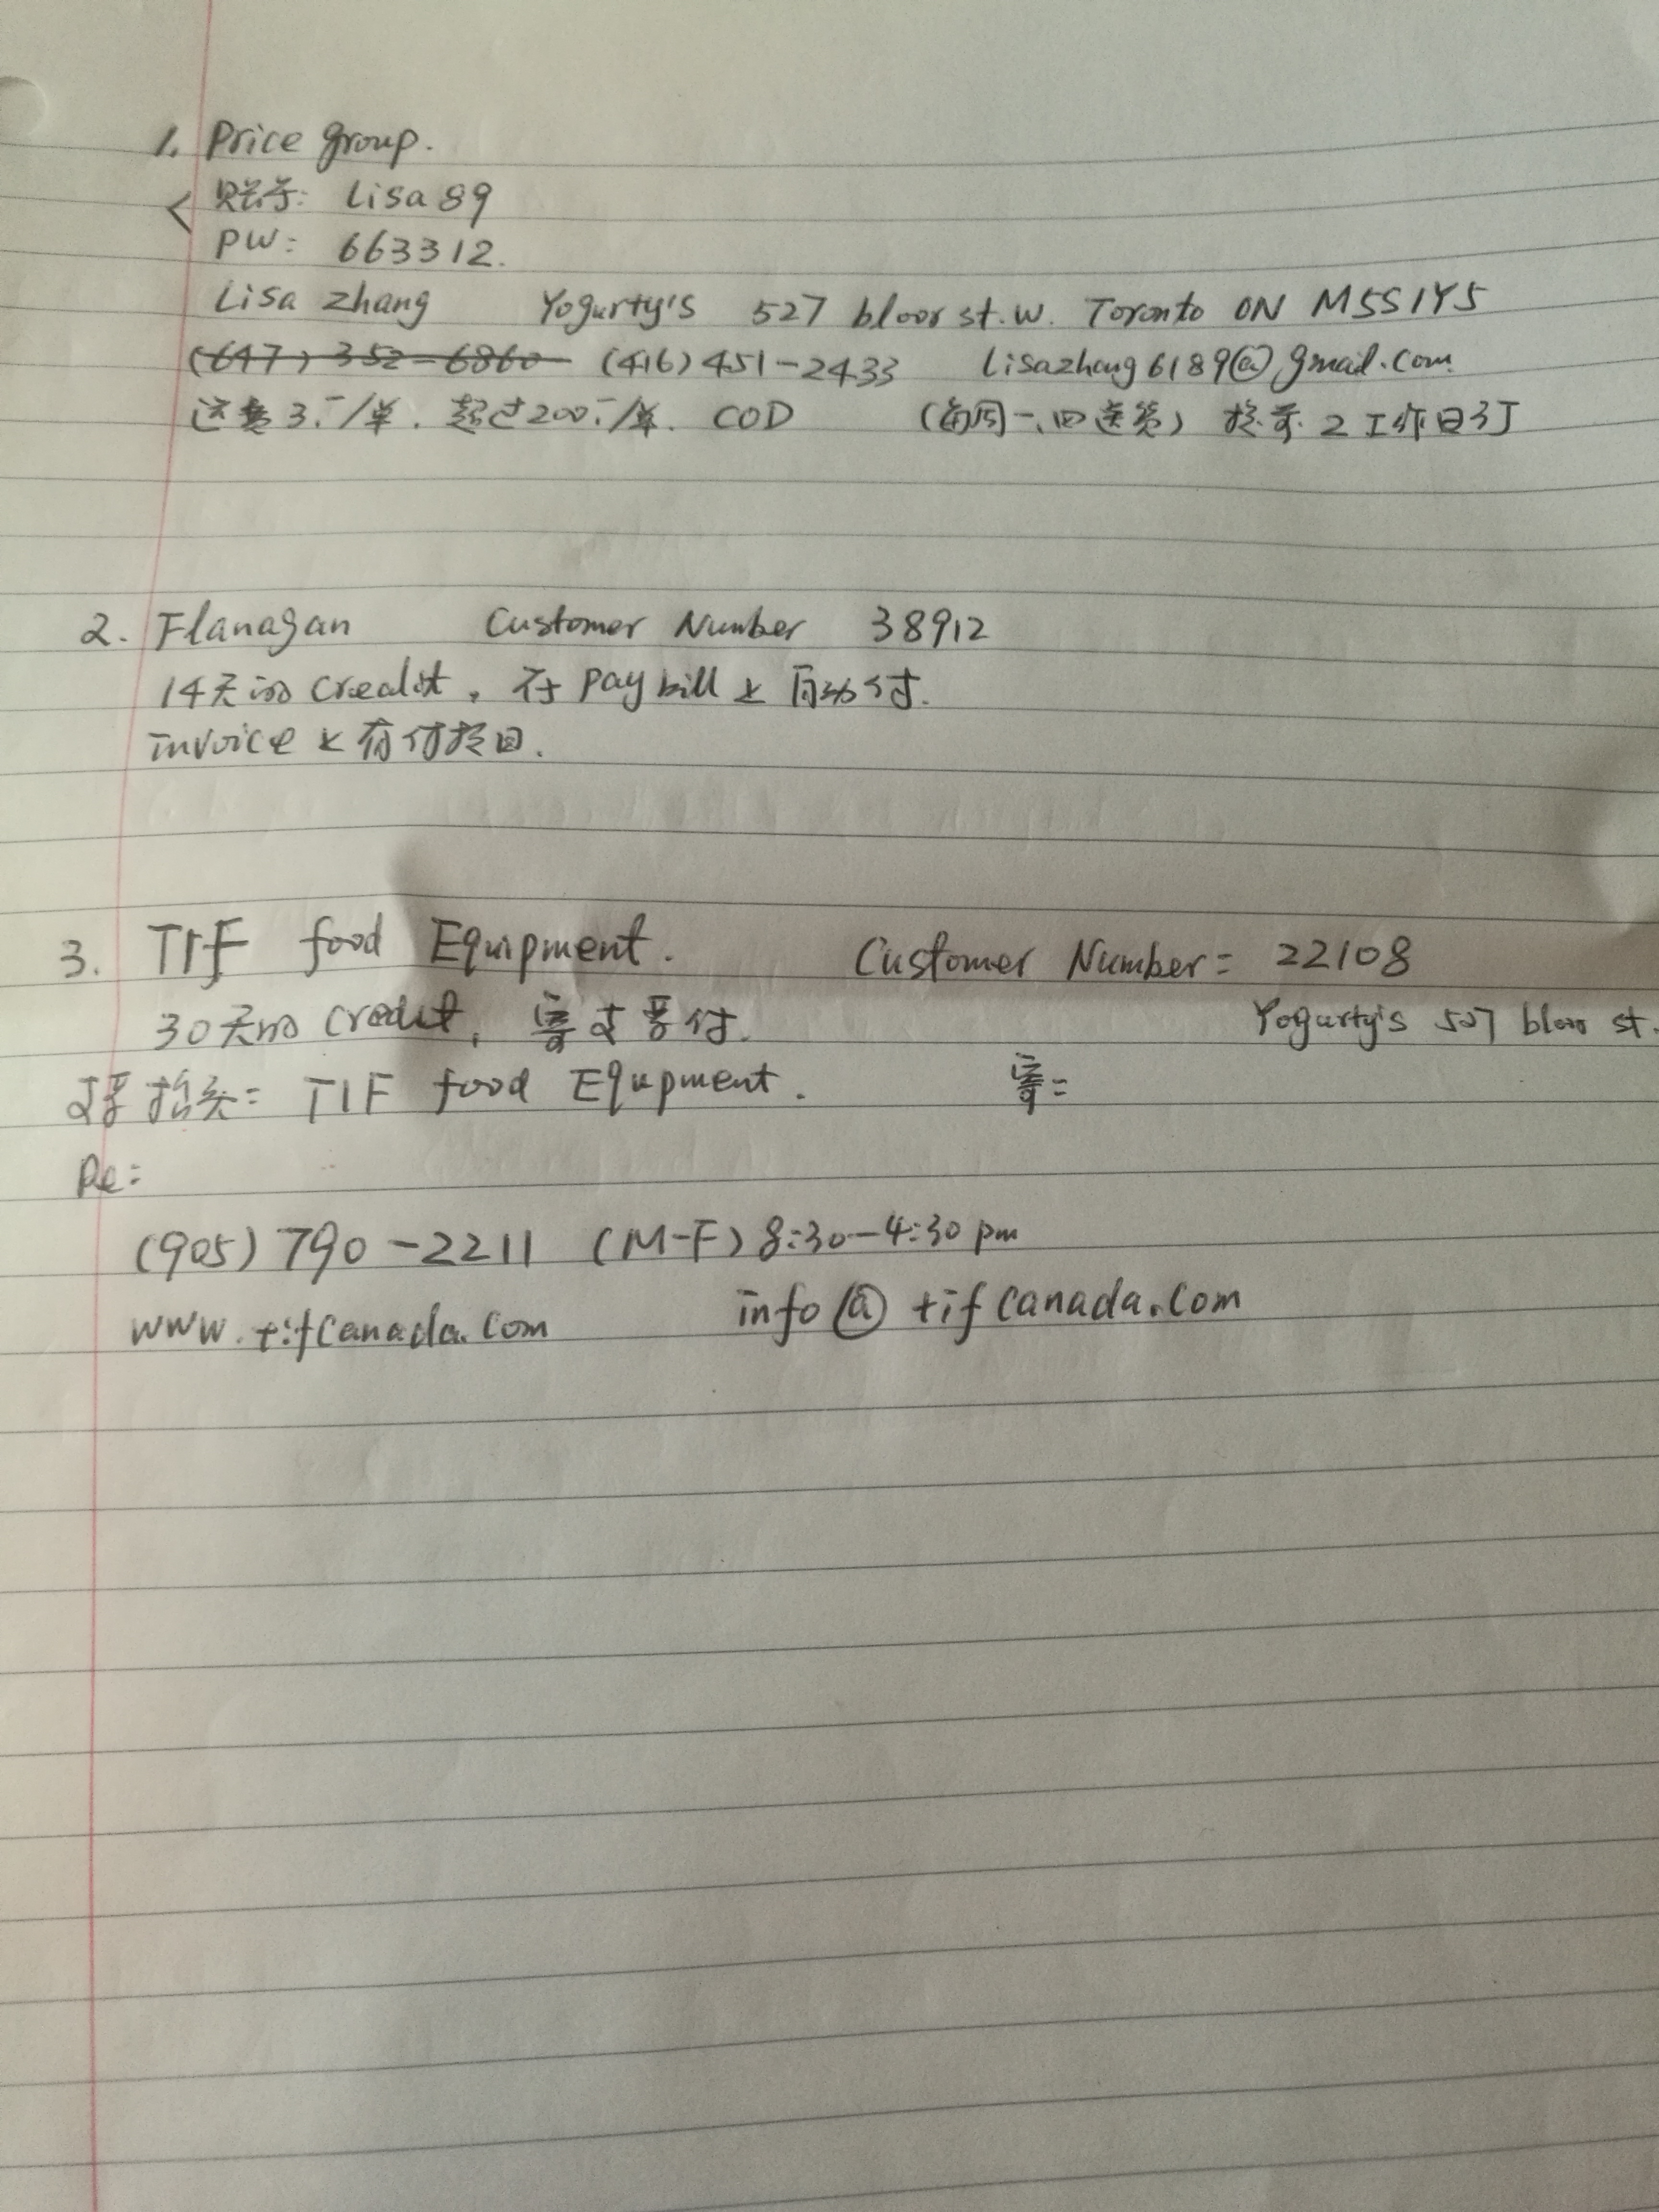 1. Price group.
账号: Lisa 89
PW: 663312.
Lisa Zhang Yogurty's 527 bloor st. W. Toronto ON M5S1Y5
(647) 352-6860 (416) 451-2433 Lisazhang6189@gmail.com
运费 3.-/单. 超过200.-/单. COD (每周一、四送货) 提前 2工作日订
2. Flanagan Customer Number 38912
14天的 credit, 在 pay bill 上自动付.
invoice 上有付款日.
3. TIF food Equipment. Customer Number: 22108
30天的 credit, 寄支票付. Yogurty's 527 bloor st.
支票抬头: TIF food Equpment. 寄:
Re:
(905) 790-2211 (M-F) 8:30-4:30 pm
www.tifcanada.com info@tifcanada.com